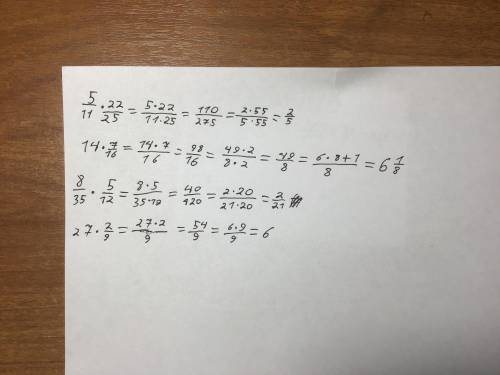 5/11 · 22/25 = 5·22/11·25 = 110/275 = 2·55/5·55 = 2/5
14 · 7/16 = 14·7/16 = 98/16 = 49·2/8·2 = 49/8 = 6·8+1/8 = 6 1/8
8/35 · 5/12 = 8·5/35·12 = 40/420 = 2·20/21·20 = 2/21
27 · 2/9 = 27·2/9 = 54/9 = 6·9/9 = 6